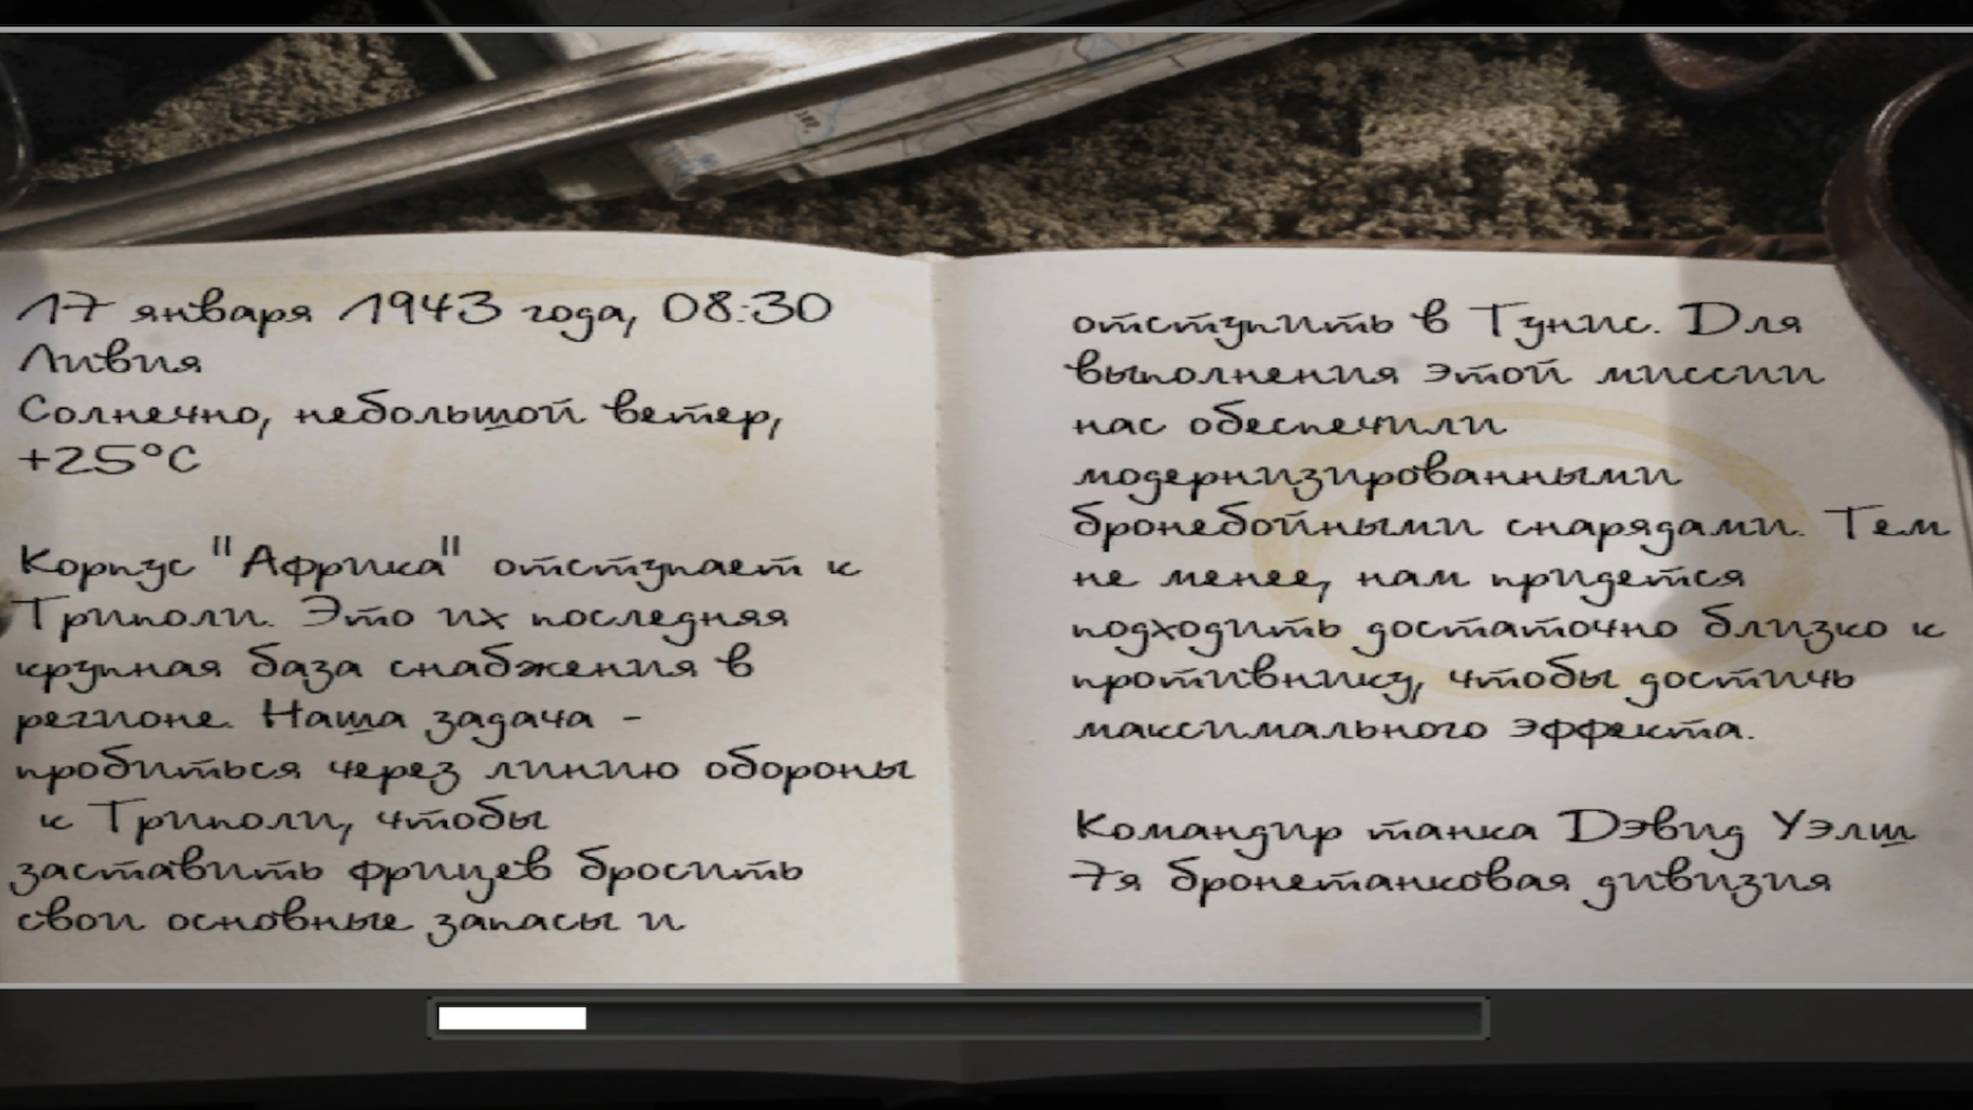 17 января 1943 года, 08:30
Ливия
Солнечно, небольшой ветер,
+25°C
Корпус "Африка" отступает к
Триполи. Это их последняя
крупная база снабжения в
регионе. Наша задача -
пробиться через линию обороны
к Триполи, чтобы
заставить фрицев бросить
свои основные запасы и
отступить в Тунис. Для
выполнения этой миссии
нас обеспечили
модернизированными
бронебойными снарядами. Тем
не менее, нам придется
подходить достаточно близко к
противнику, чтобы достичь
максимального эффекта.
Командир танка Дэвид Уэлш
7я бронетанковая дивизия